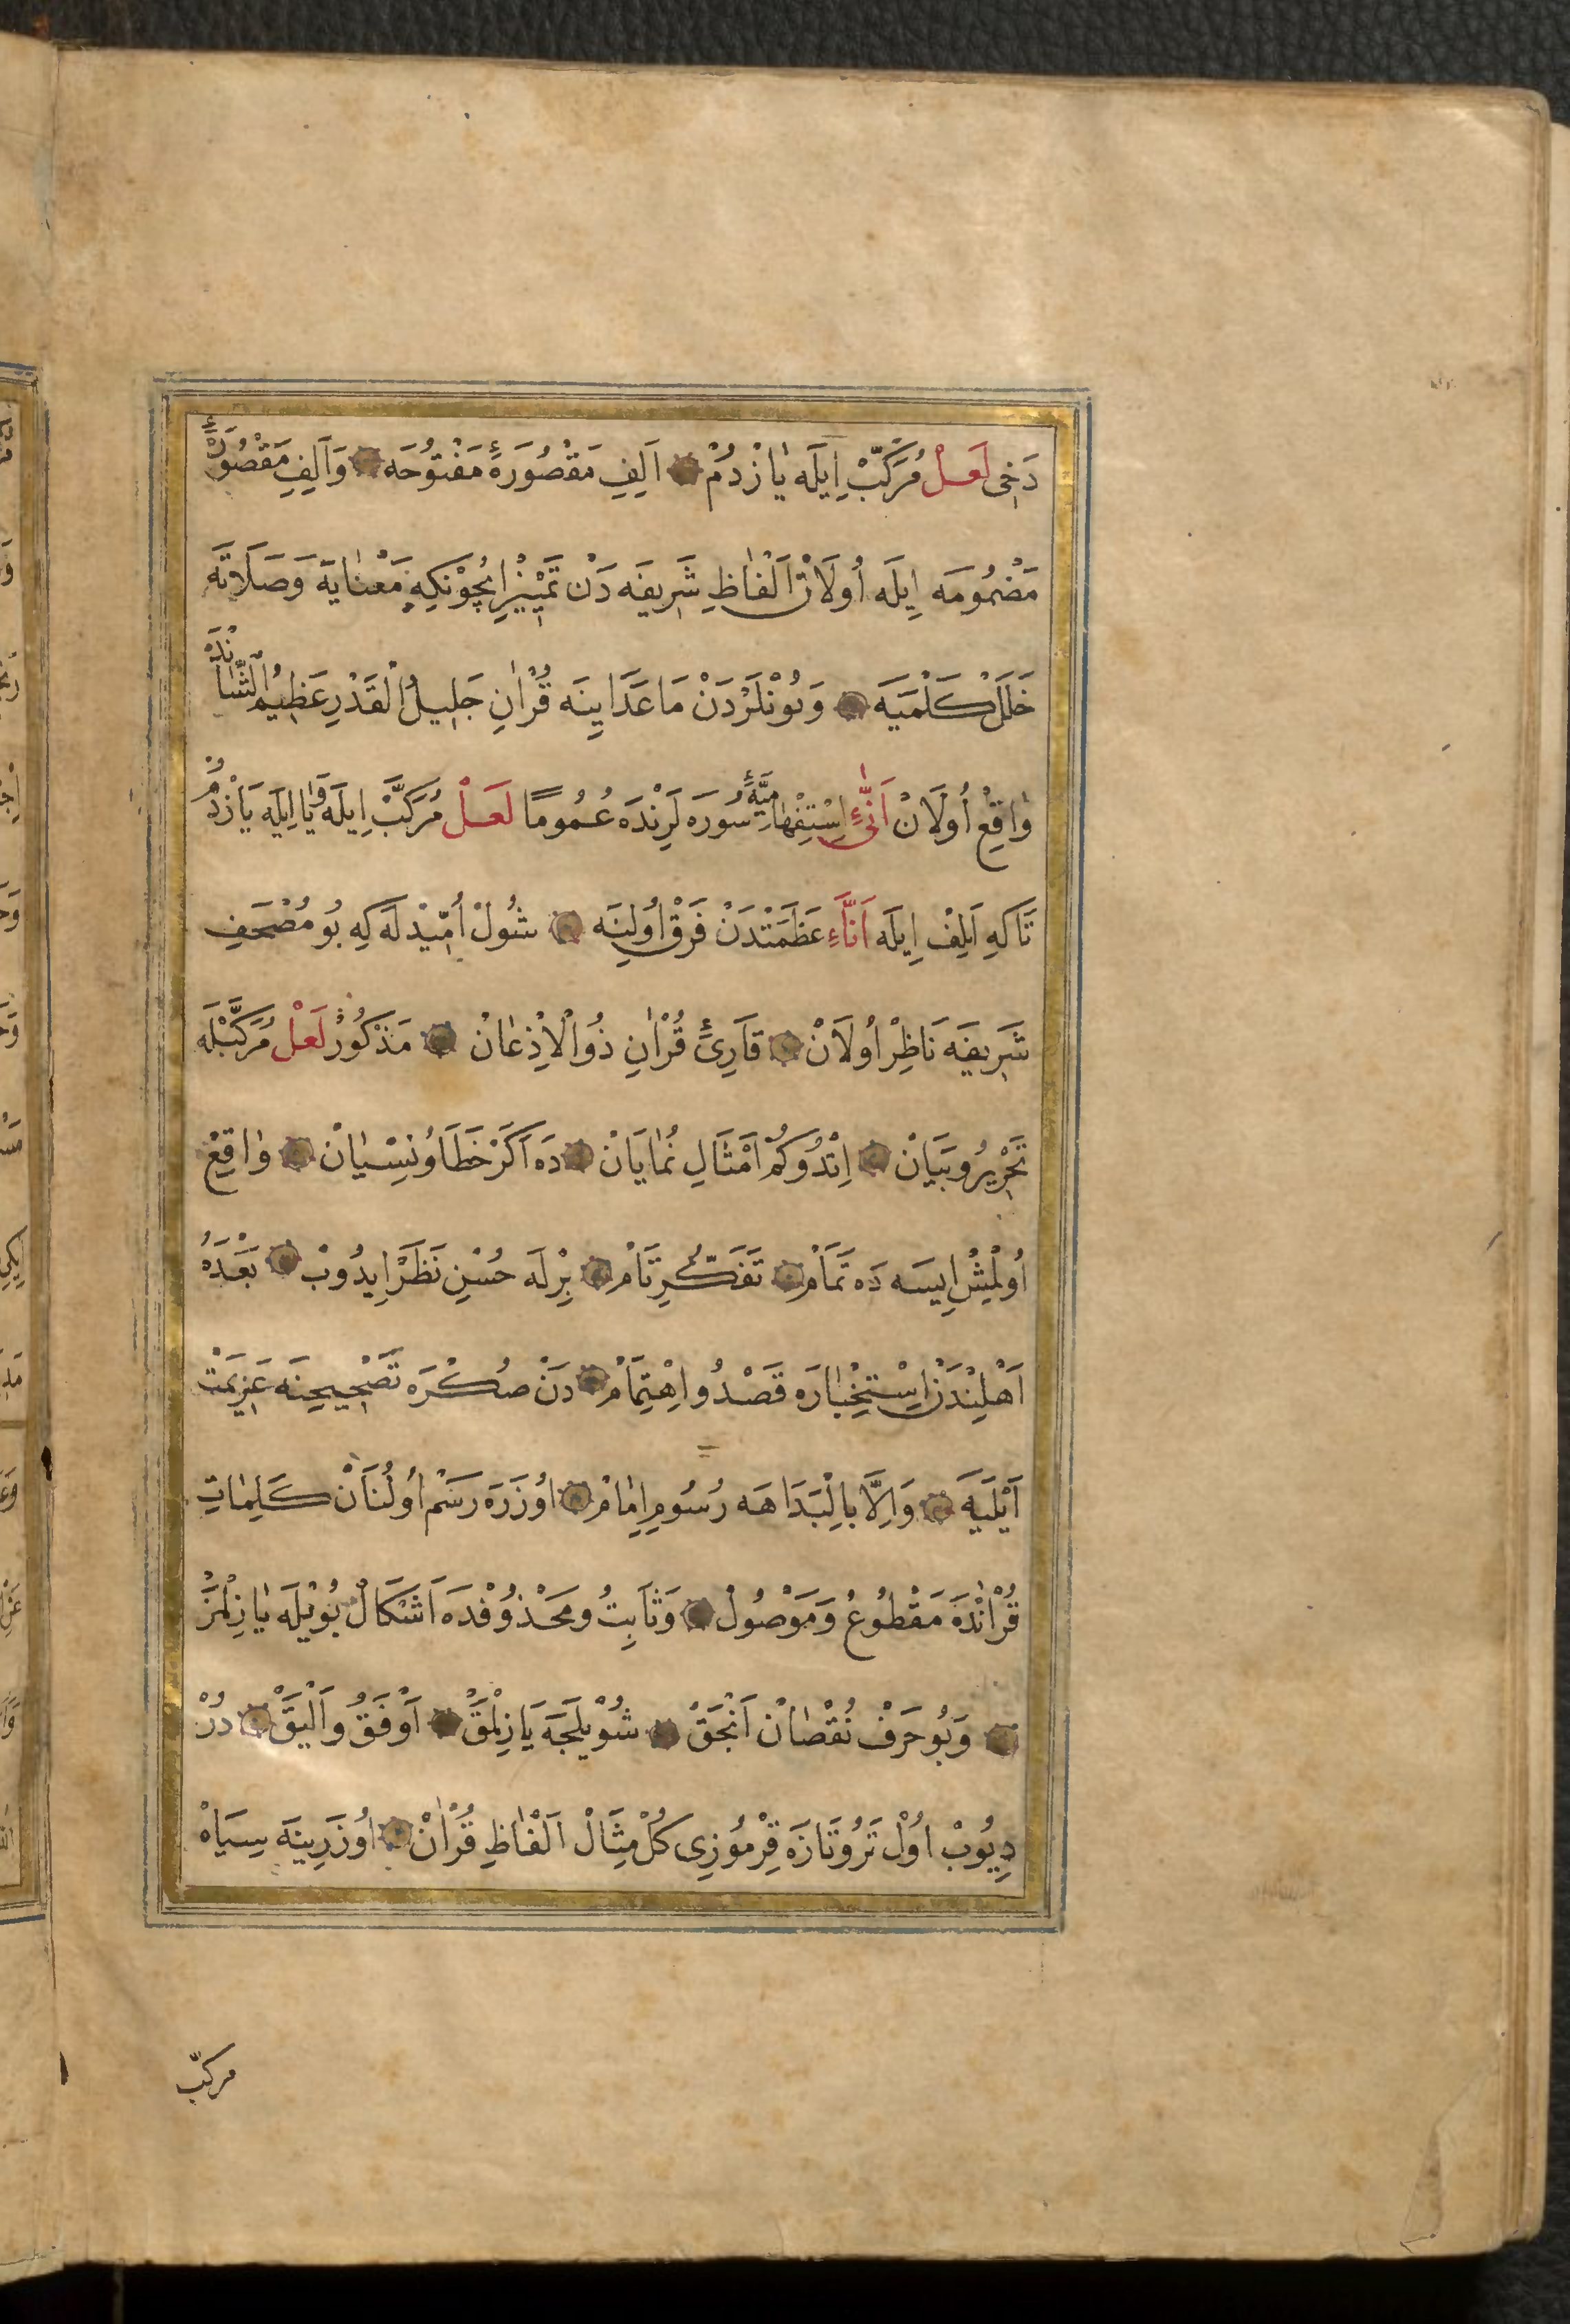 دَخِى لَعَلْ مُرَكَّبْ اِيلَه يَازْدُمْ ۞ اَلِفِ مَقْصُورَۀِ مَفْتُوحَه ۞ وَاَلِفِ مَقْصُورَۀِ
مَضْمُومَه اِيلَه اُولَانْ اَلْفَاظِ شَرِيفَه دَنْ تَمْيِيزْ اِيچُونْكِه مَعْنَايَه وَصَلَاتَه
خَلَلْ كَلْمَيَه ۞ وَبُونْلَرْدَنْ مَاعَدَايِنَه قُرْاٰنِ جَلِيلُ الْقَدْرِ عَظِيمُ الشَّانْدَه
وَاقِعْ اُولَانْ اَنّٰىءِ اِسْتِفْهَامِيَّۀِ سُورَه لَرِنْدَه عُمُومًا لَعَلْ مُرَكَّبْ اِيلَه وَيَا اِيلَه يَازْدُمْ
تَاكِه اَلِفْ اِيلَه اَنَّاءِ عَظَمَتْدَنْ فَرْقْ اُولِنَه ۞ شُولْ اُمِّيدْ لَه كِه بُو مُصْحَفِ
شَرِيفَه نَاظِرْ اُولَانْ ۞ قَارِئِ قُرْاٰنِ ذُوالْاِذْعَانْ ۞ مَذْكُورْ لَعَلْ مُرَكَّبْلَه
تَحْرِيرُ وبَيَانْ ۞ اِتْدُوكُمْ اَمْثَالِ نُمَايَانْ ۞ دَه اَكَرْ خَطَا وُنِسْيَانْ ۞ وَاقِعْ
اُولْمِشْ اِيسَه دَه تَمَامْ ۞ تَفَكُّرِ تَامْ ۞ بِرْلَه حُسْنِ نَظَرْ اِيدُوبْ ۞ بَعْدَهُ
اَهْلِنْدَنْ اِسْتِخْبَارَه قَصْدُ و اِهْتِمَامْ ۞ دَنْ صُكْرَه تَصْحِيحِنَه عَزِيمَتْ
اَيْلَيَه ۞ وَاِلَّا بِالْبَدَاهَه رُسُومِ اِمَامْ ۞ اُوزَرَه رَسْم اُولُنَانْ كَلِمَاتِ
قُرْاٰنْدَه مَقْطُوعُ وَمَوْصُولْ ۞ وَثَابِتُ ومَحْذُوفْدَه اَشْكَالْ بُويْلَه يَازِلْمَزْ
۞ وَبُو حَرَفْ نُقْصَانْ اَنْجَقْ ۞ شُويْلَجَه يَازِلْمَقْ ۞ اَوْفَقُ وَاَلْيَقْ ۞ دُرْ
دِيُوبْ اُولْ تَرُوتَازَه قِرْمُوزِى كُلْ مِثَالْ اَلْفَاظِ قُرْاٰنْ ۞ اُوزَرِينَه سِيَاهْ
مركبّ